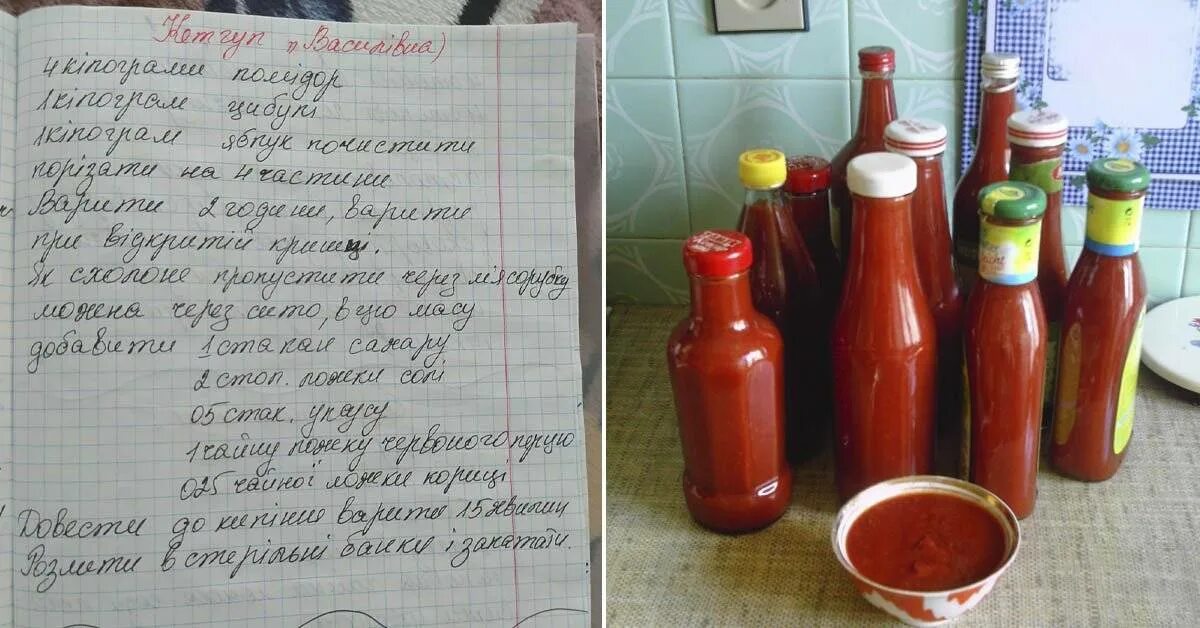 Кетчуп п. Василівна)
4 кілограми помідор
1 кілограм цибулі
1 кілограм яблук почистити
порізати на 4 частини
Варити 2 години, варити
при відкритій кришці.
Як схолоне пропустити через м'ясорубку
можна через сито, в цю масу
добавити 1 стакан сахару,
2 стол. ложки солі
05 стак. уксусу
1 чайну ложку червоного перцю
025 чайної ложки кориці
Довести до кипіння варити 15 хвилин
Розлити в стерільні банки і закатати.